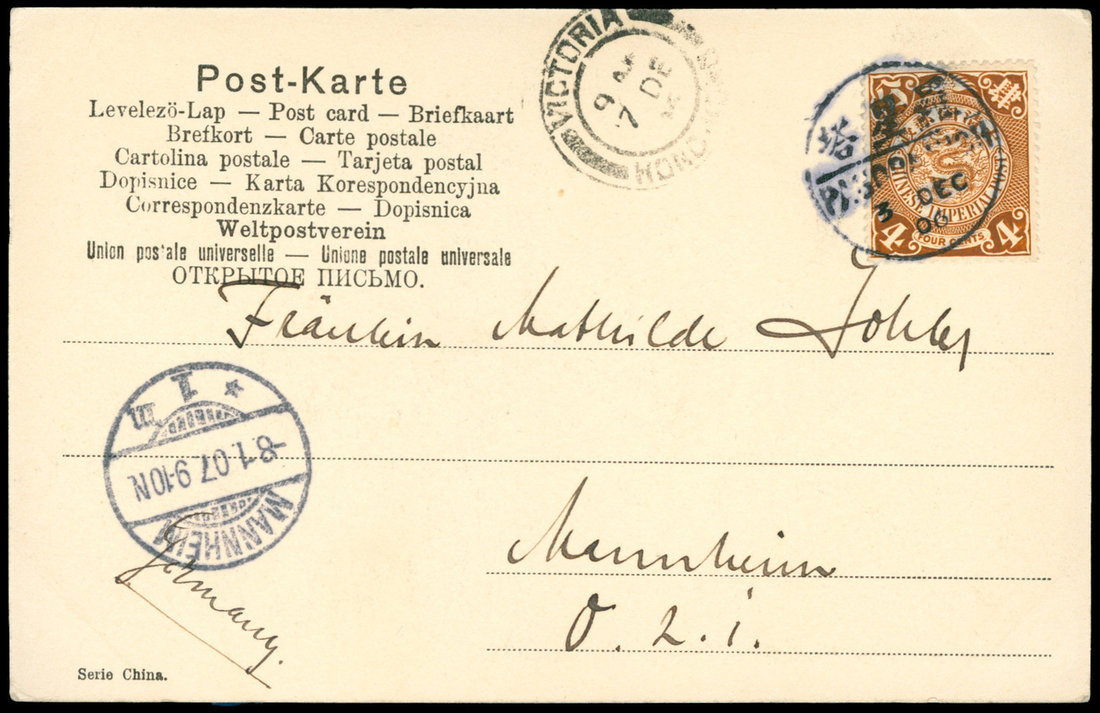 Post-Karte
Levelezö-Lap — Post card — Briefkaart
Brefkort — Carte postale
Cartolina postale — Tarjeta postal
Dopisnice — Karta Korespondencyjna
Correspondenzkarte — Dopisnica
Weltpostverein
Union postale universelle — Unione postale universale
ОТКРЫТОЕ ПИСЬМО.
VICTORIA
9 AM
7 DE
HONG
CHINESE IMPERIAL POST
3 DEC
06
4 4
FOUR CENTS
Fräulein Mathilde
1 m
8.1.07 9-10N
MANNHEIM
Mannheim
O. 2. 1.
Germany.
Serie China.